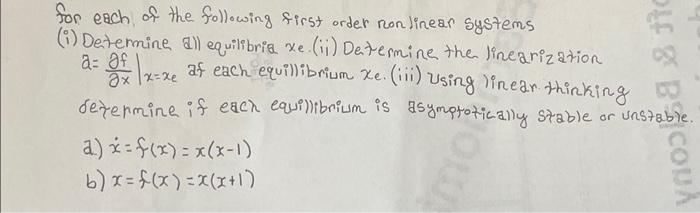 for each of the following first order nonlinear systems
(i) Determine all equilibria xe. (ii) Determine the linearization
a = ∂f/∂x |x=xe at each equillibrium xe. (iii) Using linear thinking
determine if each equillibrium is asymptotically stable or unstable.
a.) ẋ = f(x) = x(x-1)
b) x = f(x) = x(x+1)